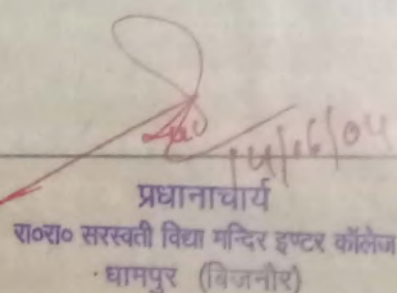 14/6/04
प्रधानाचार्य
रा०रा० सरस्वती विद्या मन्दिर इण्टर कॉलेज
धामपुर (बिजनौर)